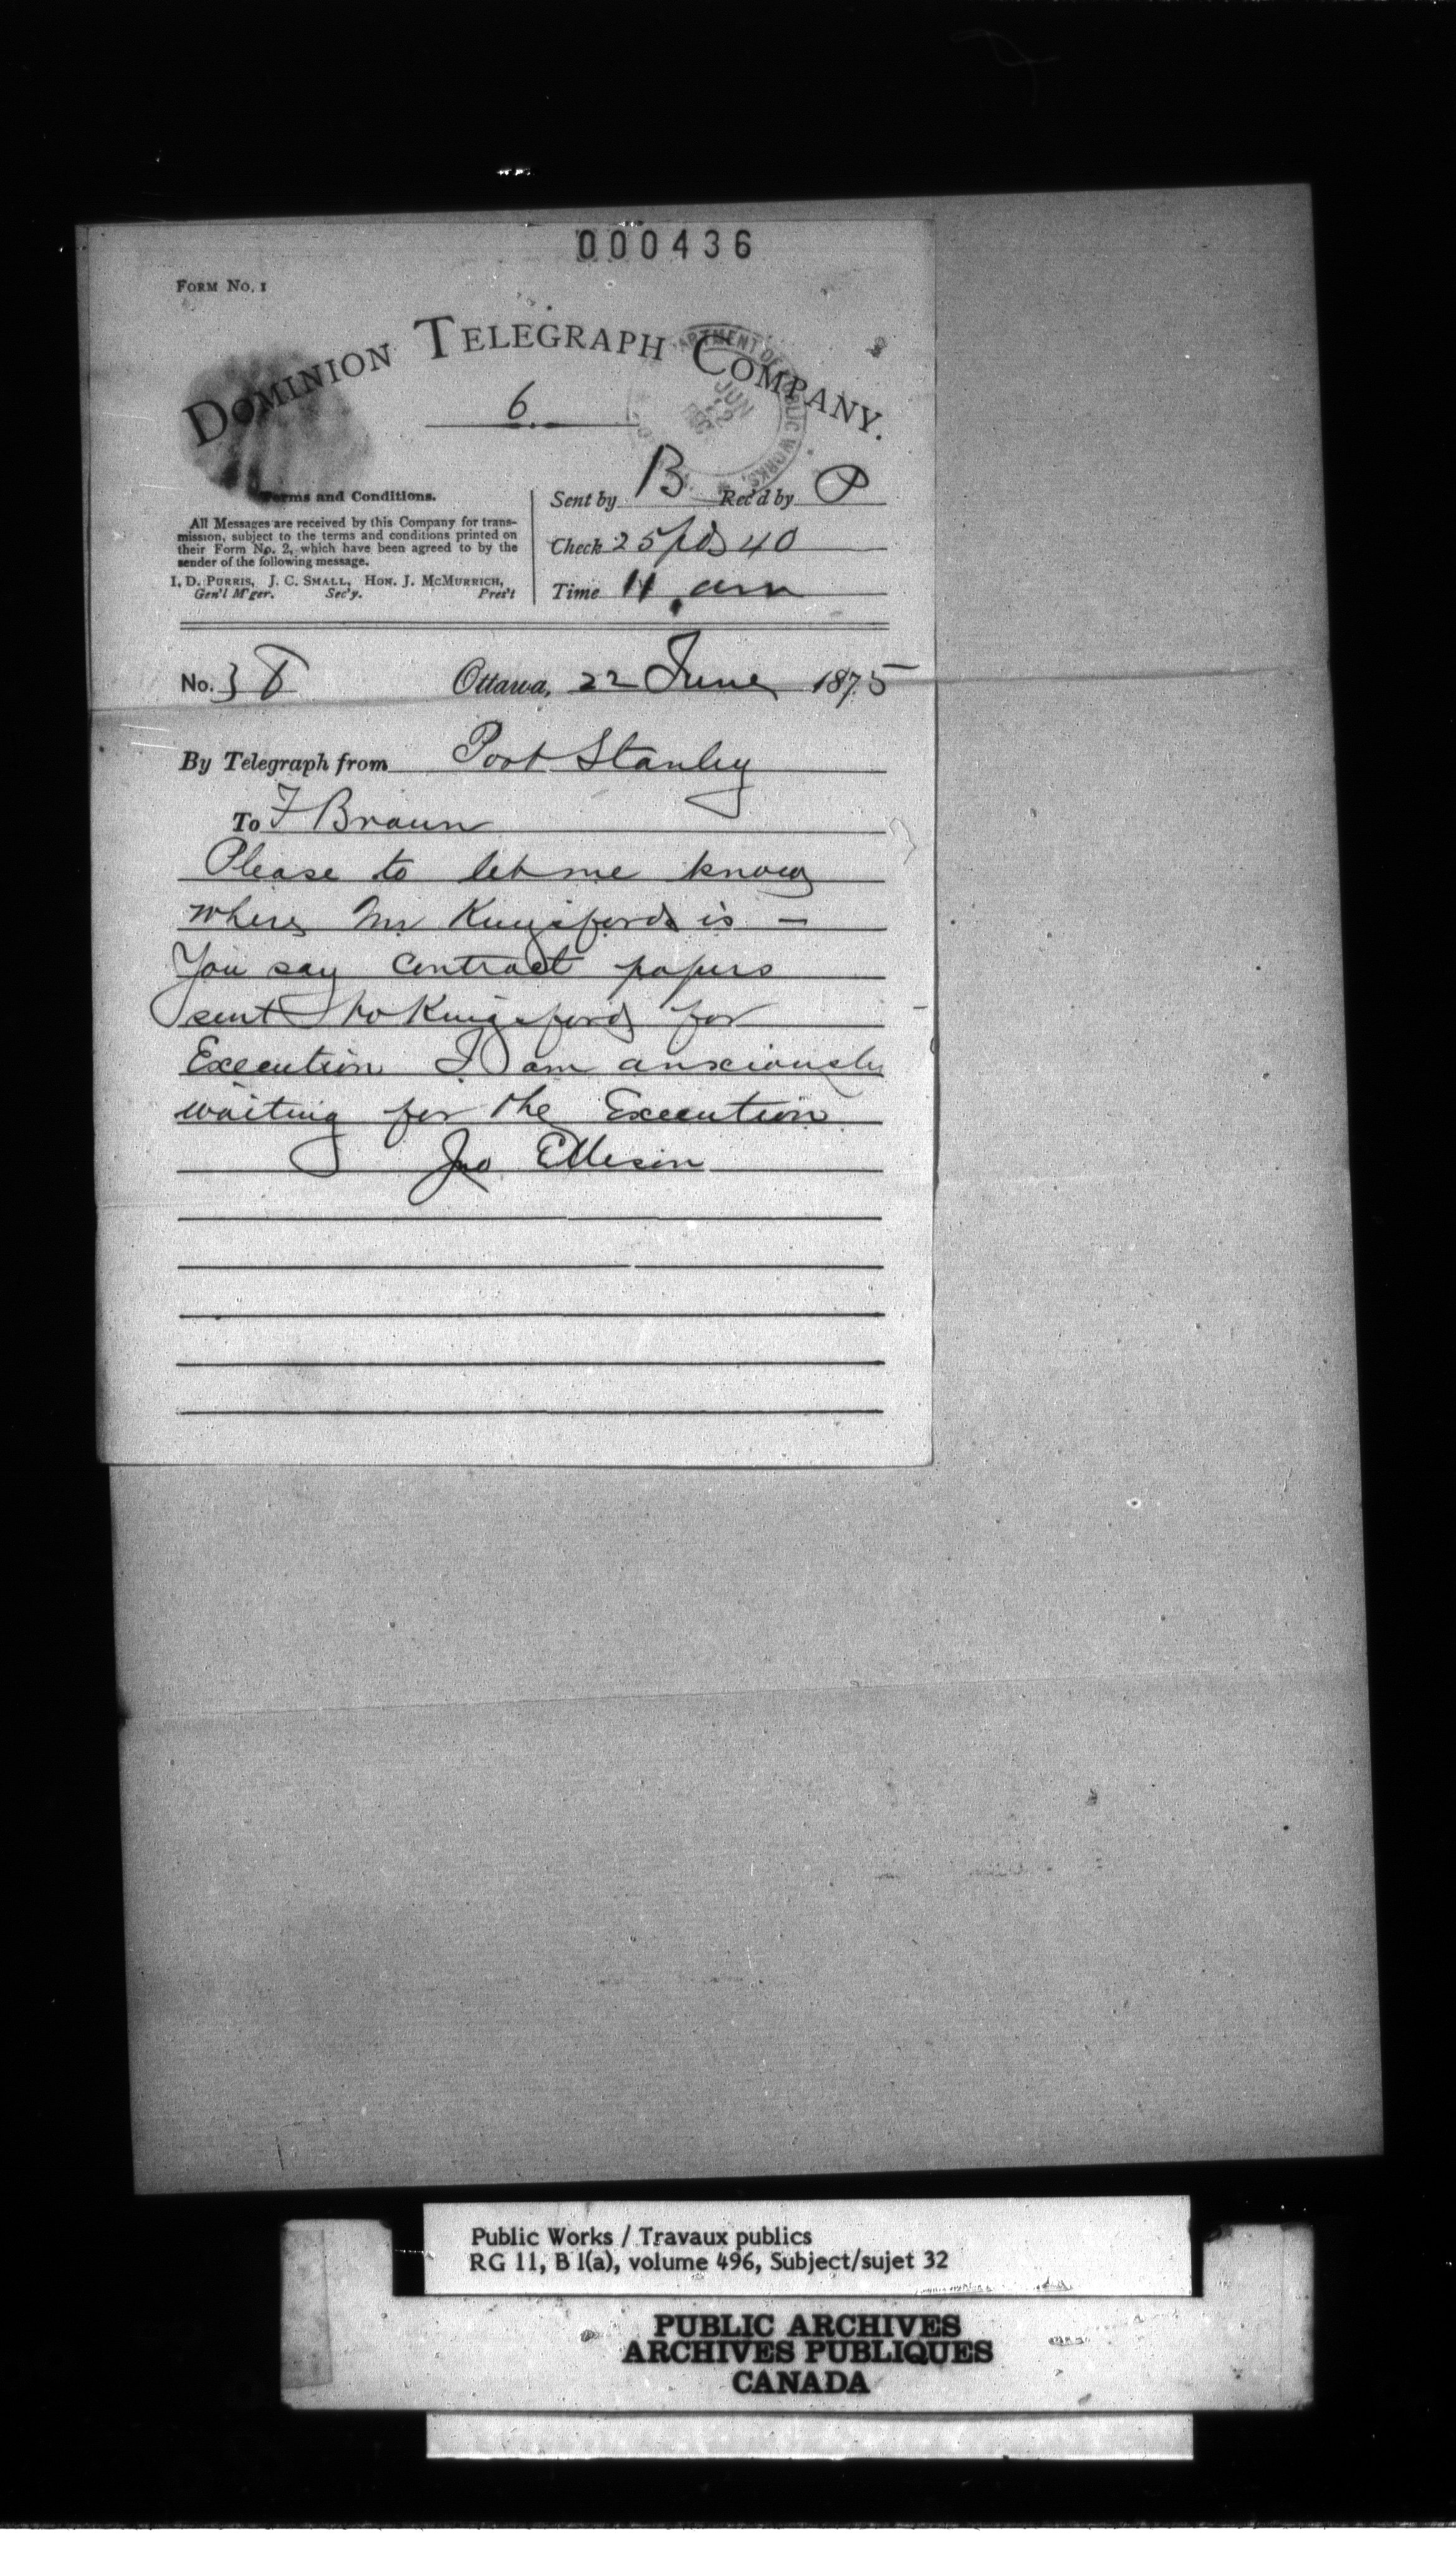 000436
FORM No. 1
DOMINION TELEGRAPH COMPANY.
6
DEPARTMENT OF PUBLIC WORKS
JUN
Terms and Conditions.
All Messages are received by this Company for trans-
mission, subject to the terms and conditions printed on
their Form No. 2, which have been agreed to by the
sender of the following message.
I. D. PURRIS, J. C. SMALL, HON. J. McMURRICH,
Gen'l M'ger. Sec'y. Pres't
Sent by B Rec'd by P
Check 25 pd 40
Time 11. am
No. 3 Ottawa, 22 June 1875
By Telegraph from Port Stanley
To F Braun
Please to let me know
where Mr Kingsford is —
You say contract papers
sent to Kingsford for
Execution I am anxiously
waiting for the Execution
Jno Ellison
Public Works / Travaux publics
RG 11, B 1(a), volume 496, Subject/sujet 32
PUBLIC ARCHIVES
ARCHIVES PUBLIQUES
CANADA